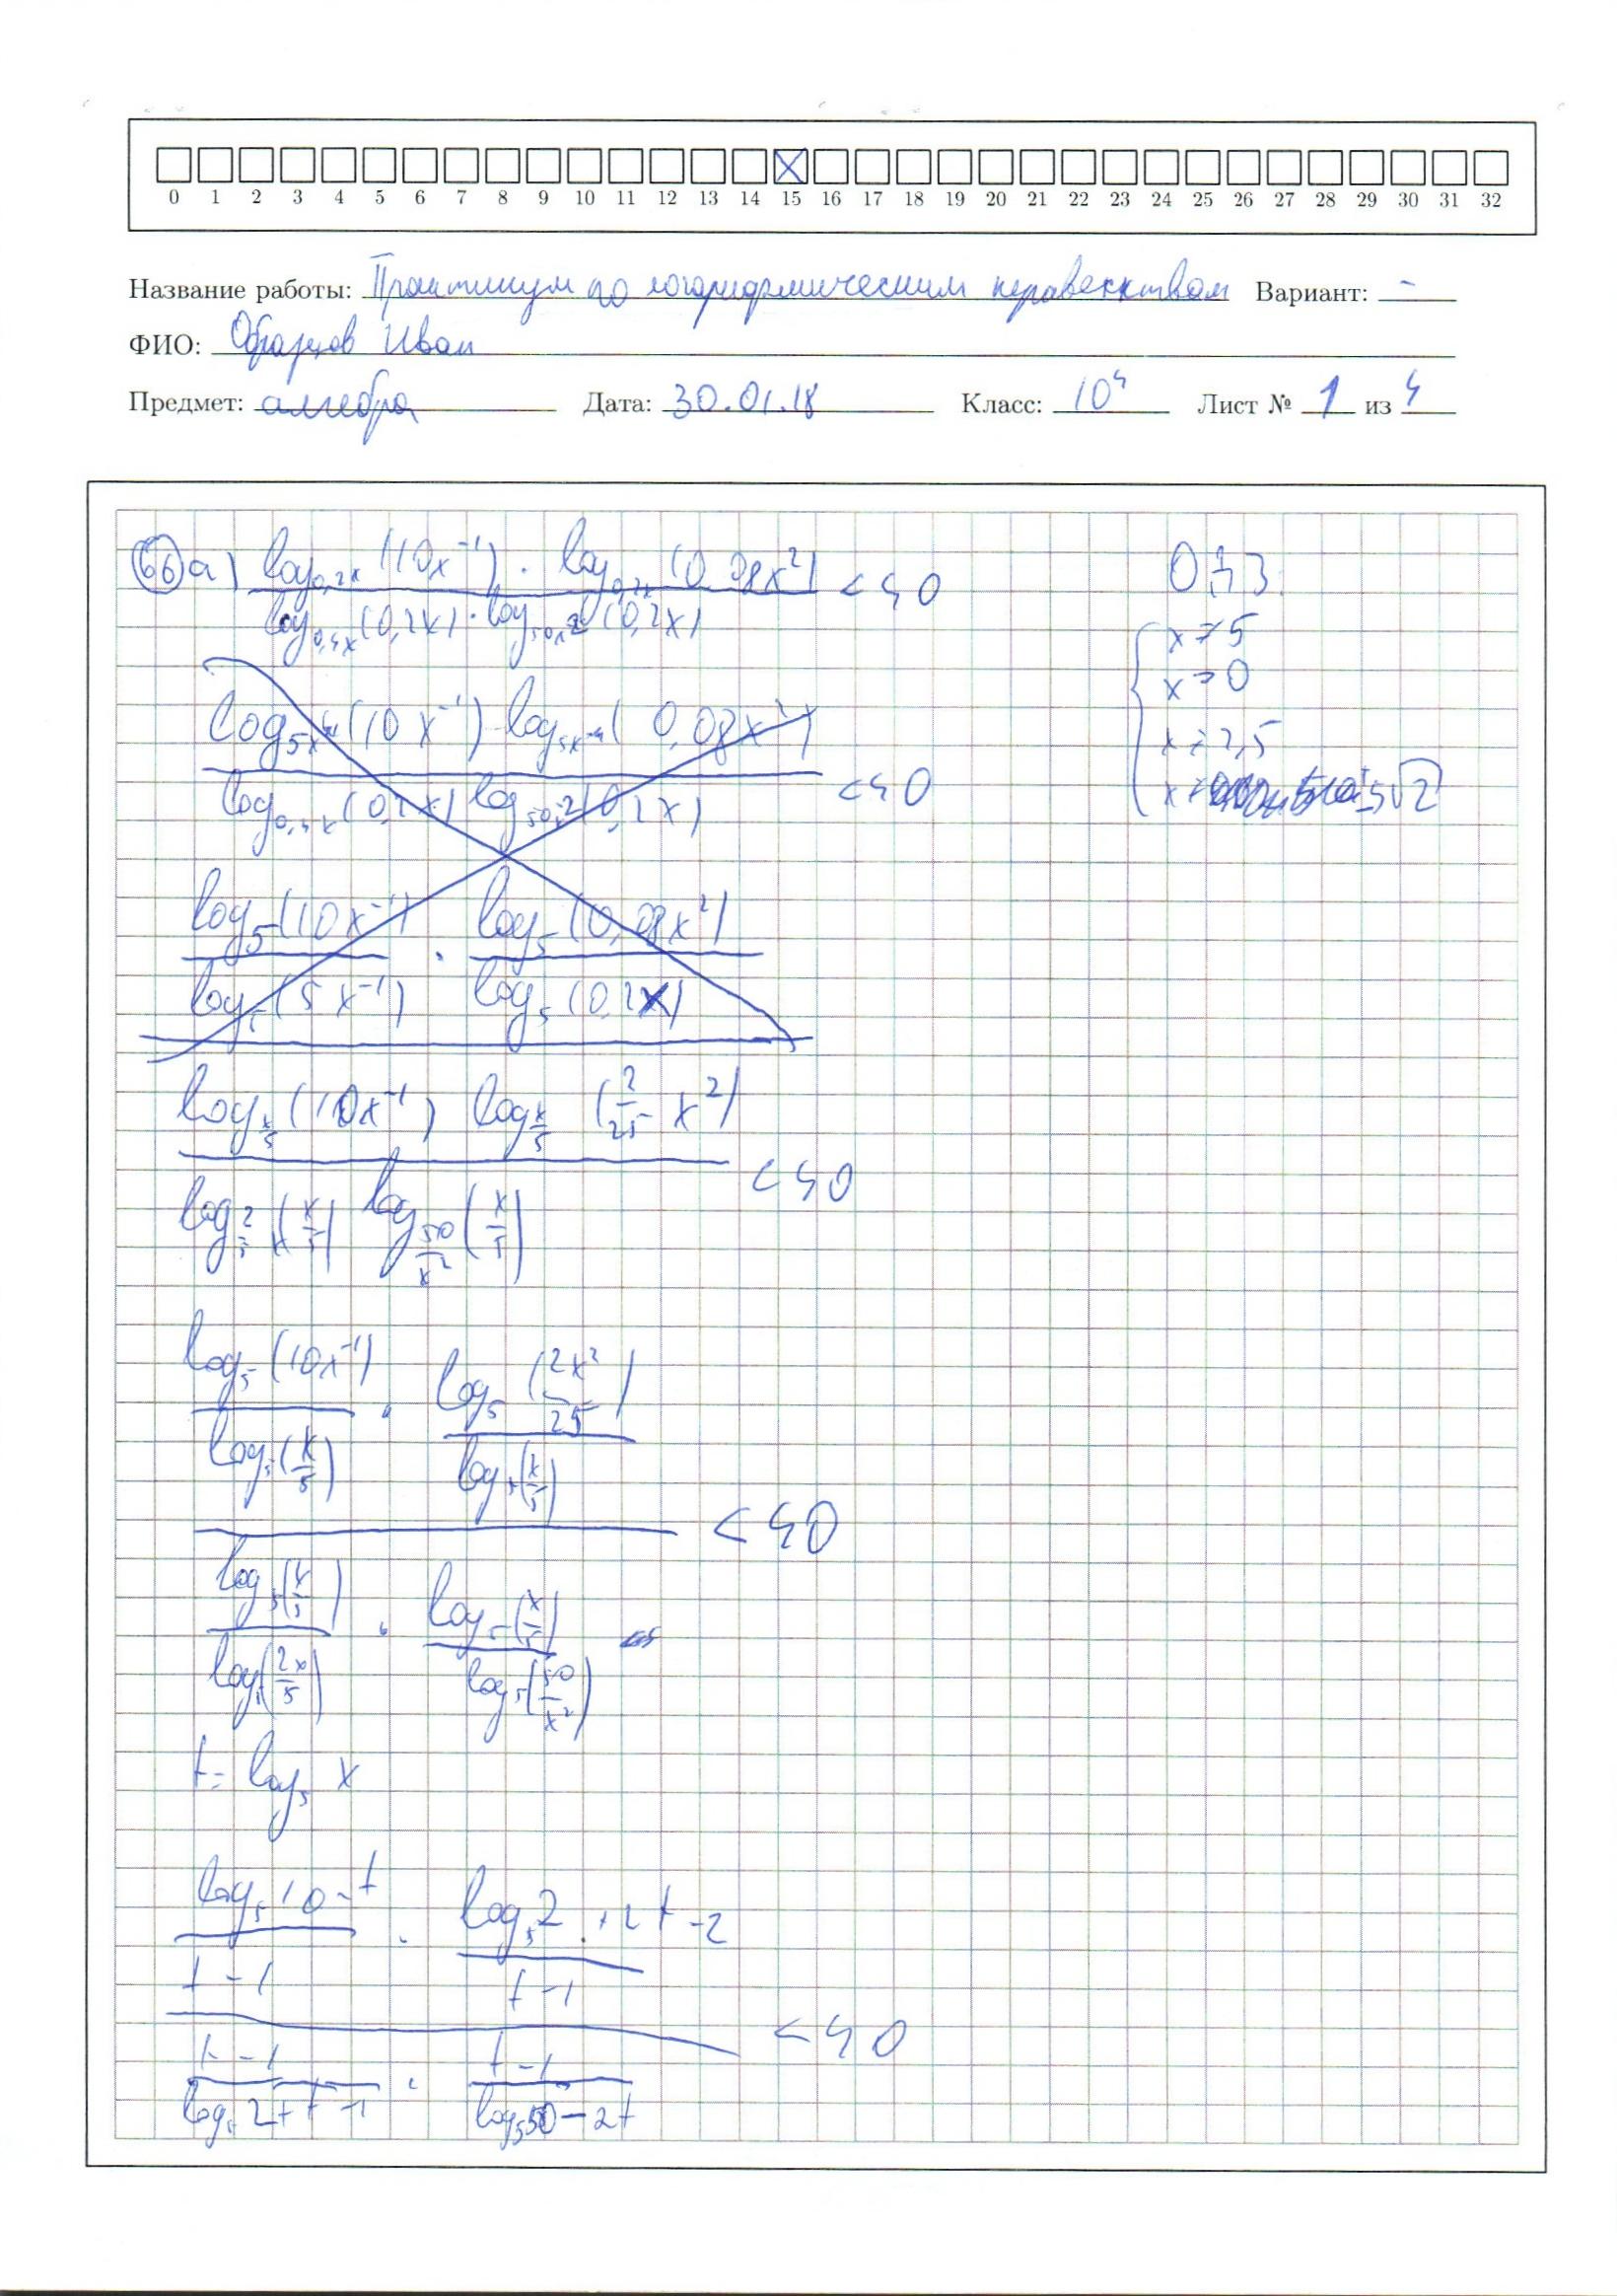 0 1 2 3 4 5 6 7 8 9 10 11 12 13 14 15 16 17 18 19 20 21 22 23 24 25 26 27 28 29 30 31 32
Название работы: Практикум по логарифмическим неравенствам Вариант: -
ФИО: Образцов Иван
Предмет: алгебра Дата: 30.01.18 Класс: 10⁴ Лист № 1 из 4
66 а) log_{0,2x}(10x⁻¹) · log_{0,2x}(0,08x²) < 40
log_{0,4x}(0,2x) · log_{50x⁻²}(0,2x)
ОДЗ:
x ≠ 5
x > 0
x ≠ 2,5
x ≠ 5√2
log_{5x⁻¹}(10x⁻¹) · log_{5x⁻¹}(0,08x²)
log_{0,4x}(0,2x) log_{50x⁻²}(0,2x) < 40
log₅(10x⁻¹) · log₅(0,08x²)
log₅(5x⁻¹) log₅(0,2x)
log_{x/5}(10x⁻¹) log_{x/5}(2/25 x²) < 40
log_{2/5 x}(x/5) log_{50/x²}(x/5)
log₅(10x⁻¹) · log₅(2x²/25)
log₅(x/5) log₅(x/5) < 40
log₅(x/5) · log₅(x/5)
log₅(2x/5) log₅(50/x²)
t = log₅ x
log₅10 - t · log₅2 + 2t - 2
t - 1 t - 1 < 40
t - 1 · t - 1
log₅2 + t - 1 log₅50 - 2t